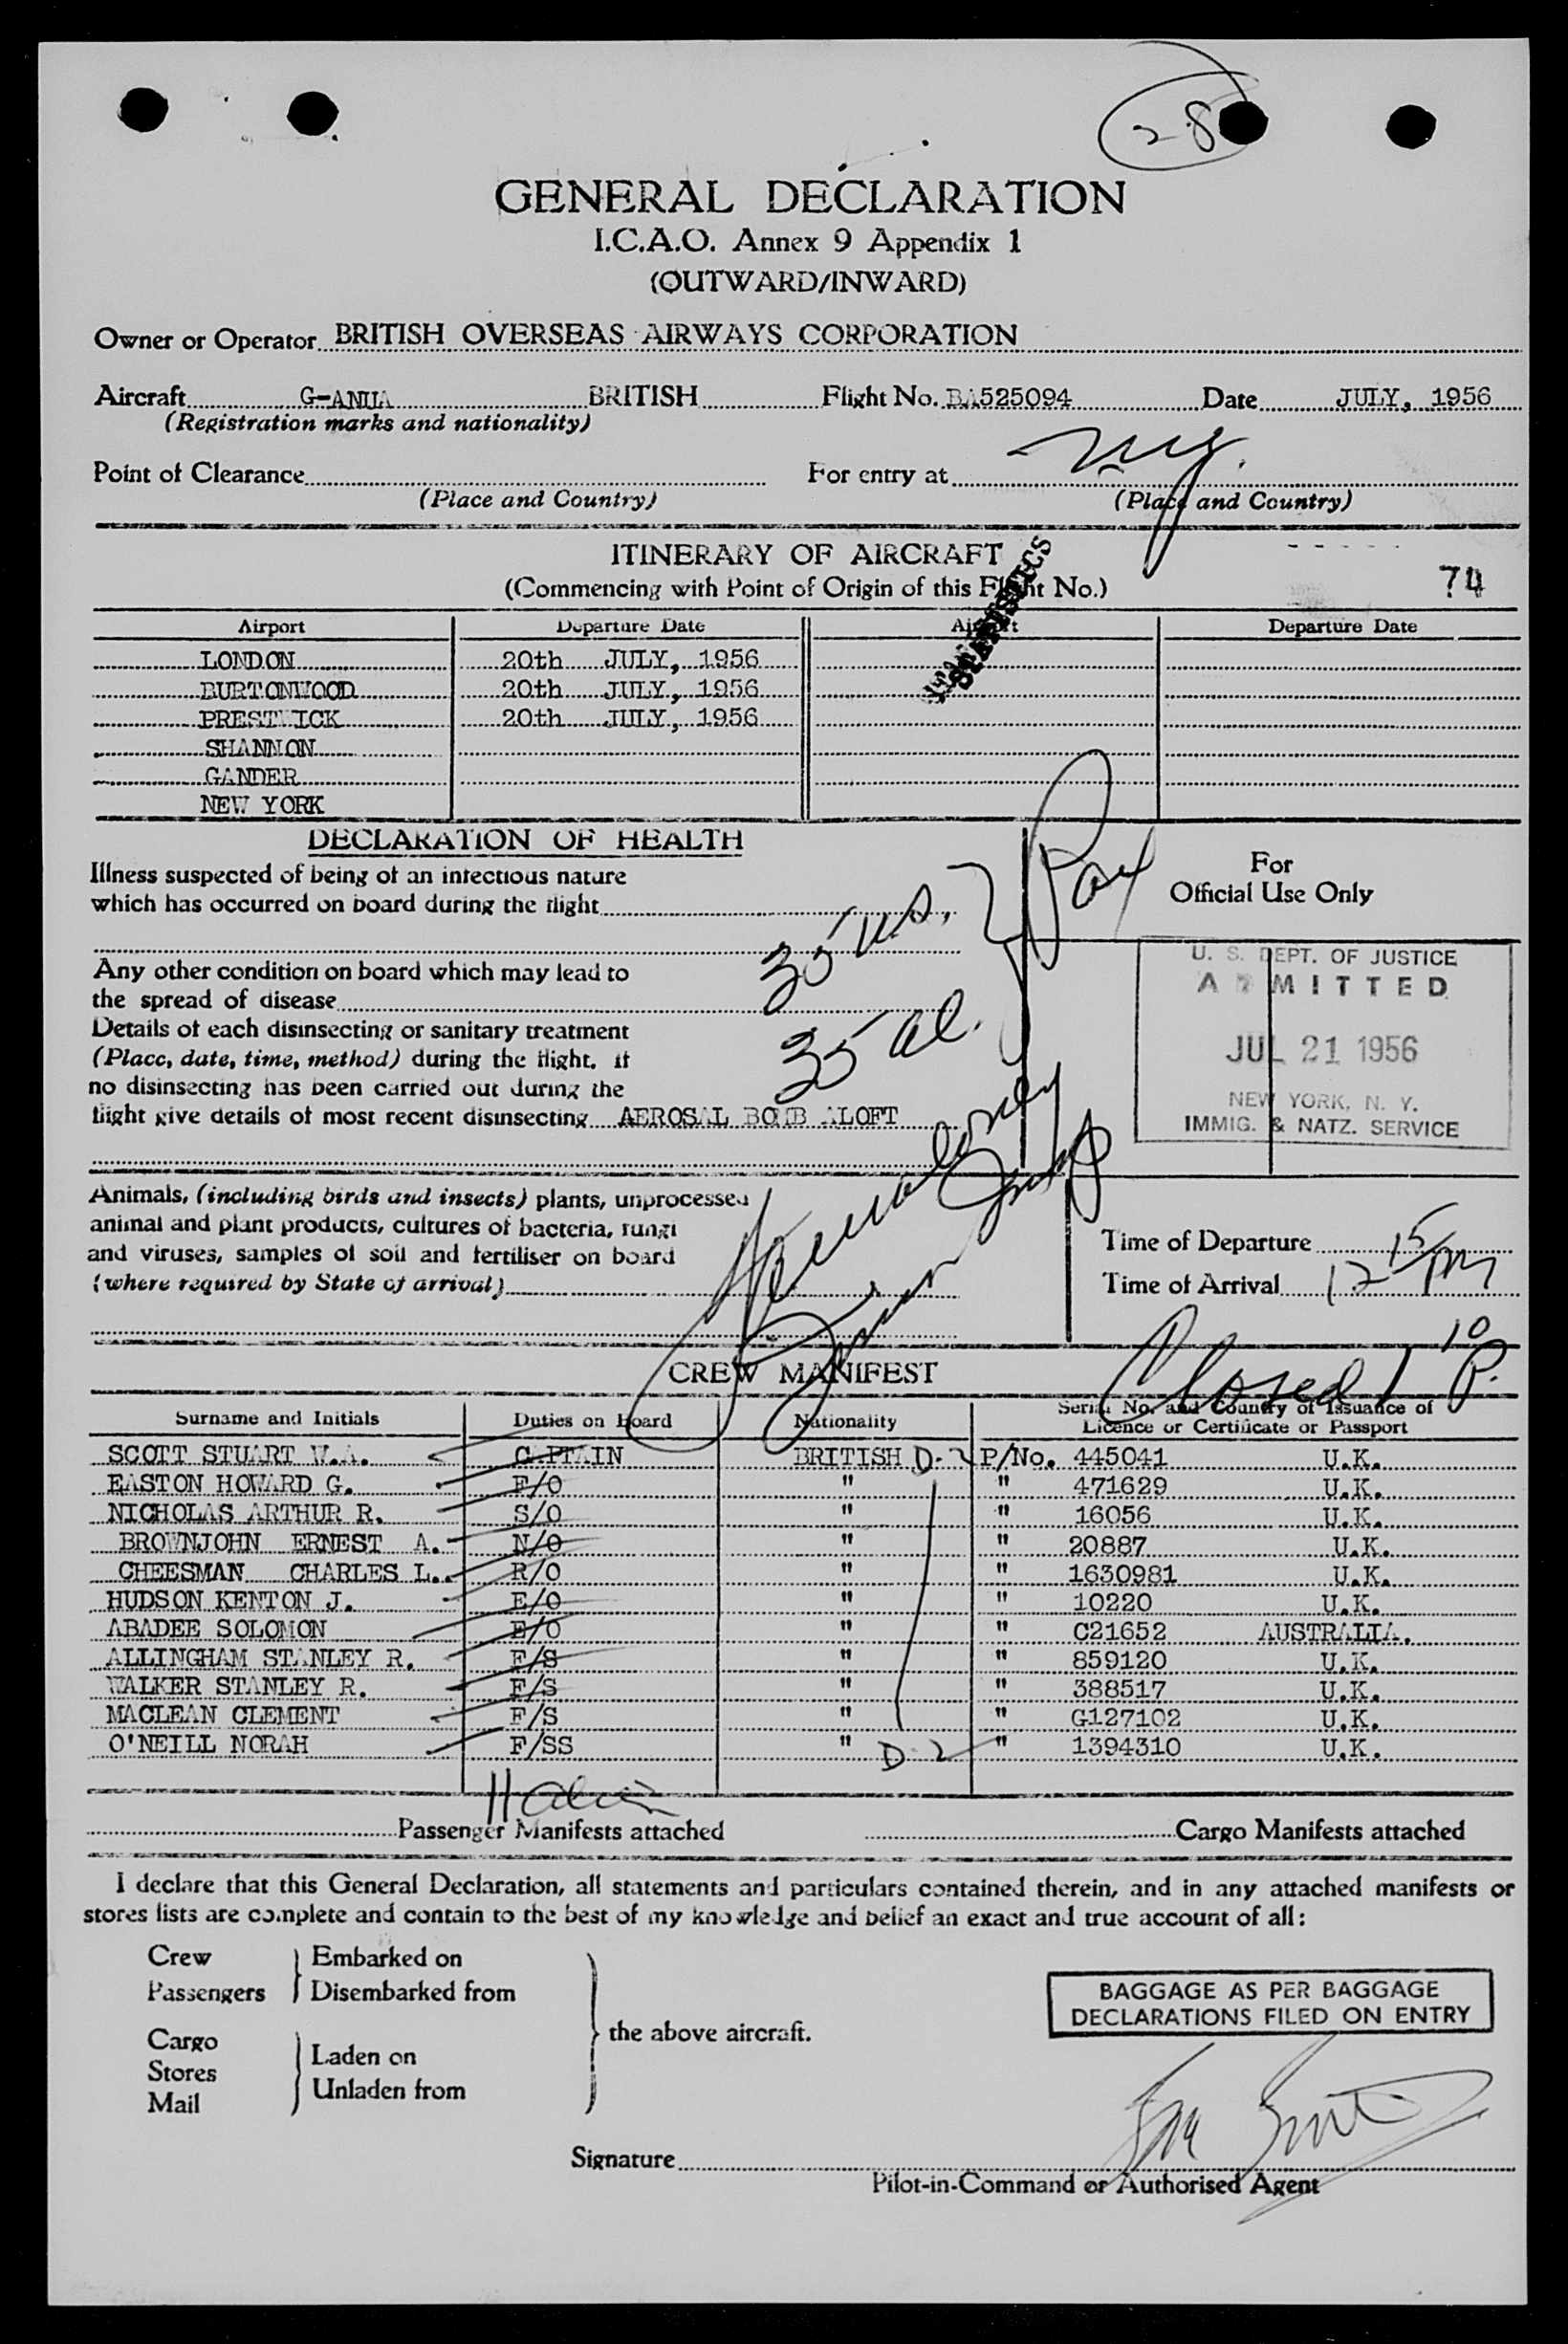 28
GENERAL DECLARATION
I.C.A.O. Annex 9 Appendix 1
(OUTWARD/INWARD)
Owner or Operator BRITISH OVERSEAS AIRWAYS CORPORATION
Aircraft G-ANUA BRITISH Flight No. BA525094 Date JULY, 1956
(Registration marks and nationality)
Point of Clearance For entry at ny.
(Place and Country) (Place and Country)
ITINERARY OF AIRCRAFT
(Commencing with Point of Origin of this Flight No.) 74
STATISTICS
Airport Departure Date Airport Departure Date
LONDON 20th JULY, 1956
BURTONWOOD 20th JULY, 1956
PRESTWICK 20th JULY, 1956
SHANNON
GANDER
NEW YORK
DECLARATION OF HEALTH
Illness suspected of being of an infectious nature
which has occurred on board during the flight
For
Official Use Only
35 us. Pax
Any other condition on board which may lead to
the spread of disease
35 al.
Details of each disinsecting or sanitary treatment
(Place, date, time, method) during the flight. If
no disinsecting has been carried out during the
flight give details of most recent disinsecting AEROSAL BOMB ALOFT
U. S. DEPT. OF JUSTICE
ADMITTED
JUL 21 1956
NEW YORK, N. Y.
IMMIG. & NATZ. SERVICE
Animals, (including birds and insects) plants, unprocessed
animal and plant products, cultures of bacteria, fungi
and viruses, samples of soil and fertiliser on board
(where required by State of arrival)
Time of Departure
Time of Arrival 12 15 PM
Closed 1 10 P.
CREW MANIFEST
Surname and Initials Duties on Board Nationality Serial No. and Country of Issuance of
Licence or Certificate or Passport
SCOTT STUART W.A. CAPTAIN BRITISH D-2 P/No. 445041 U.K.
EASTON HOWARD G. F/O " " 471629 U.K.
NICHOLAS ARTHUR R. S/O " " 16056 U.K.
BROWNJOHN ERNEST A. N/O " " 20887 U.K.
CHEESMAN CHARLES L.. R/O " " 1630981 U.K.
HUDSON KENTON J. E/O " " 10220 U.K.
ABADEE SOLOMON E/O " " C21652 AUSTRALIA.
ALLINGHAM STANLEY R. F/S " " 859120 U.K.
WALKER STANLEY R. F/S " " 388517 U.K.
MACLEAN CLEMENT F/S " " G127102 U.K.
O'NEILL NORAH F/SS " D-2 " 1394310 U.K.
11
Passenger Manifests attached Cargo Manifests attached
I declare that this General Declaration, all statements and particulars contained therein, and in any attached manifests or
stores lists are complete and contain to the best of my knowledge and belief an exact and true account of all:
Crew Embarked on
Passengers Disembarked from
the above aircraft.
Cargo
Stores Laden on
Mail Unladen from
BAGGAGE AS PER BAGGAGE
DECLARATIONS FILED ON ENTRY
Signature
Pilot-in-Command or Authorised Agent